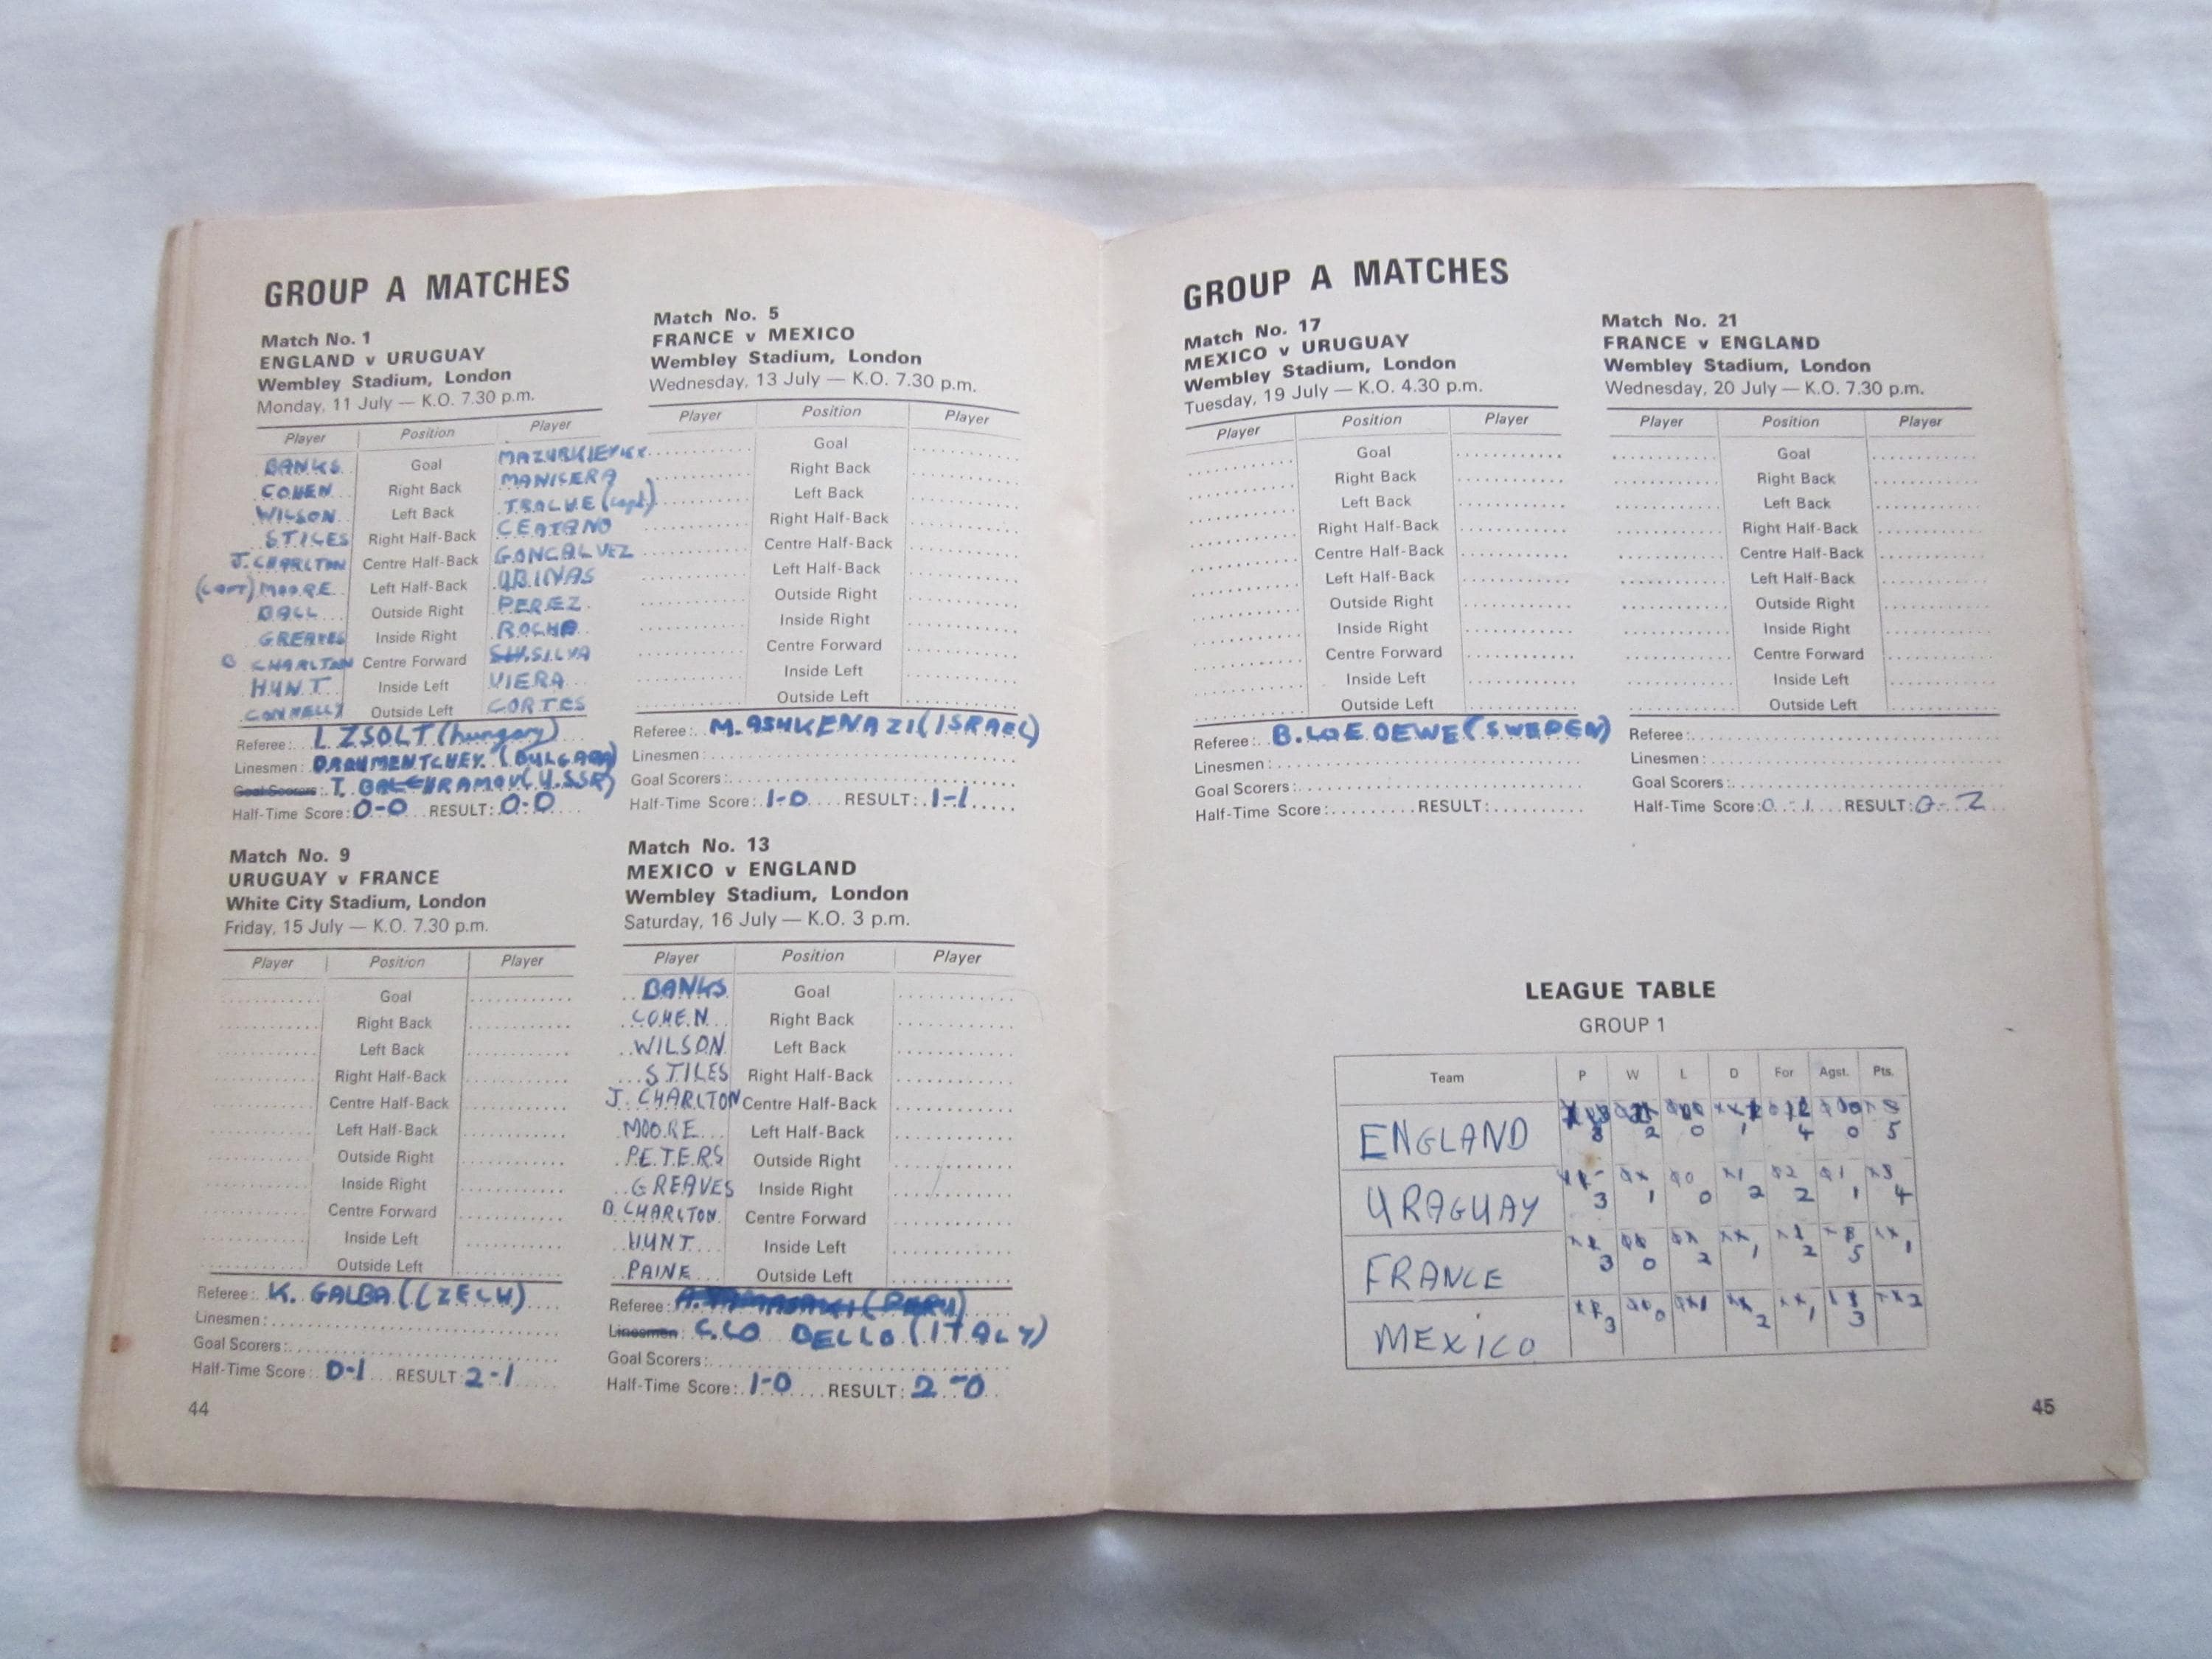 GROUP A MATCHES
Match No. 1
ENGLAND v URUGUAY
Wembley Stadium, London
Monday, 11 July — K.O. 7.30 p.m.
Player Position Player
BANKS Goal
COHEN Right Back MANISERA
WILSON Left Back
STILES Right Half-Back
J. CHARLTON Centre Half-Back GONCALVEZ
MOORE Left Half-Back UBINAS
BALL Outside Right PEREZ
GREAVES Inside Right ROCHA
B CHARLTON Centre Forward SILVA
HUNT Inside Left VIERA
CONNELLY Outside Left CORTES
Referee: I. ZSOLT (hungary)
Linesmen:
Goal Scorers: T.
Half-Time Score: 0-0 RESULT: 0-0
Match No. 5
FRANCE v MEXICO
Wembley Stadium, London
Wednesday, 13 July — K.O. 7.30 p.m.
Player Position Player
Goal
Right Back
Left Back
Right Half-Back
Centre Half-Back
Left Half-Back
Outside Right
Inside Right
Centre Forward
Inside Left
Outside Left
Referee: M. ASHKENAZI (ISRAEL)
Linesmen:
Goal Scorers:
Half-Time Score: 1-0 RESULT: 1-1
Match No. 9
URUGUAY v FRANCE
White City Stadium, London
Friday, 15 July — K.O. 7.30 p.m.
Player Position Player
Goal
Right Back
Left Back
Right Half-Back
Centre Half-Back
Left Half-Back
Outside Right
Inside Right
Centre Forward
Inside Left
Outside Left
Referee: K. GALBA (CZECH)
Linesmen:
Goal Scorers:
Half-Time Score: 0-1 RESULT: 2-1
Match No. 13
MEXICO v ENGLAND
Wembley Stadium, London
Saturday, 16 July — K.O. 3 p.m.
Player Position Player
BANKS Goal
COHEN Right Back
WILSON Left Back
STILES Right Half-Back
J. CHARLTON Centre Half-Back
MOORE Left Half-Back
PETERS Outside Right
GREAVES Inside Right
B. CHARLTON Centre Forward
HUNT Inside Left
PAINE Outside Left
Referee:
Linesmen: C. LO BELLO (ITALY)
Goal Scorers:
Half-Time Score: 1-0 RESULT: 2-0
44
GROUP A MATCHES
Match No. 17
MEXICO v URUGUAY
Wembley Stadium, London
Tuesday, 19 July — K.O. 4.30 p.m.
Player Position Player
Goal
Right Back
Left Back
Right Half-Back
Centre Half-Back
Left Half-Back
Outside Right
Inside Right
Centre Forward
Inside Left
Outside Left
Referee: B. LOE OEWE (SWEDEN)
Linesmen:
Goal Scorers:
Half-Time Score: RESULT:
Match No. 21
FRANCE v ENGLAND
Wembley Stadium, London
Wednesday, 20 July — K.O. 7.30 p.m.
Player Position Player
Goal
Right Back
Left Back
Right Half-Back
Centre Half-Back
Left Half-Back
Outside Right
Inside Right
Centre Forward
Inside Left
Outside Left
Referee:
Linesmen:
Goal Scorers:
Half-Time Score: 0-1 RESULT: 0-2
LEAGUE TABLE
GROUP 1
Team P W L D For Agst. Pts.
ENGLAND 3 2 0 1 4 0 5
URAGUAY 3 1 0 2 2 1 4
FRANCE 3 0 2 1 2 5 1
MEXICO 3 0 1 2 1 3 2
45